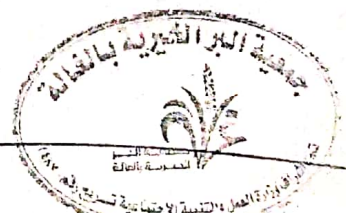 جمعية البر الخيرية بالغالة
جمعية البر
الخيرية بالغالة
تحت إشراف وزارة العمل والتنمية الاجتماعية تصريح رقم